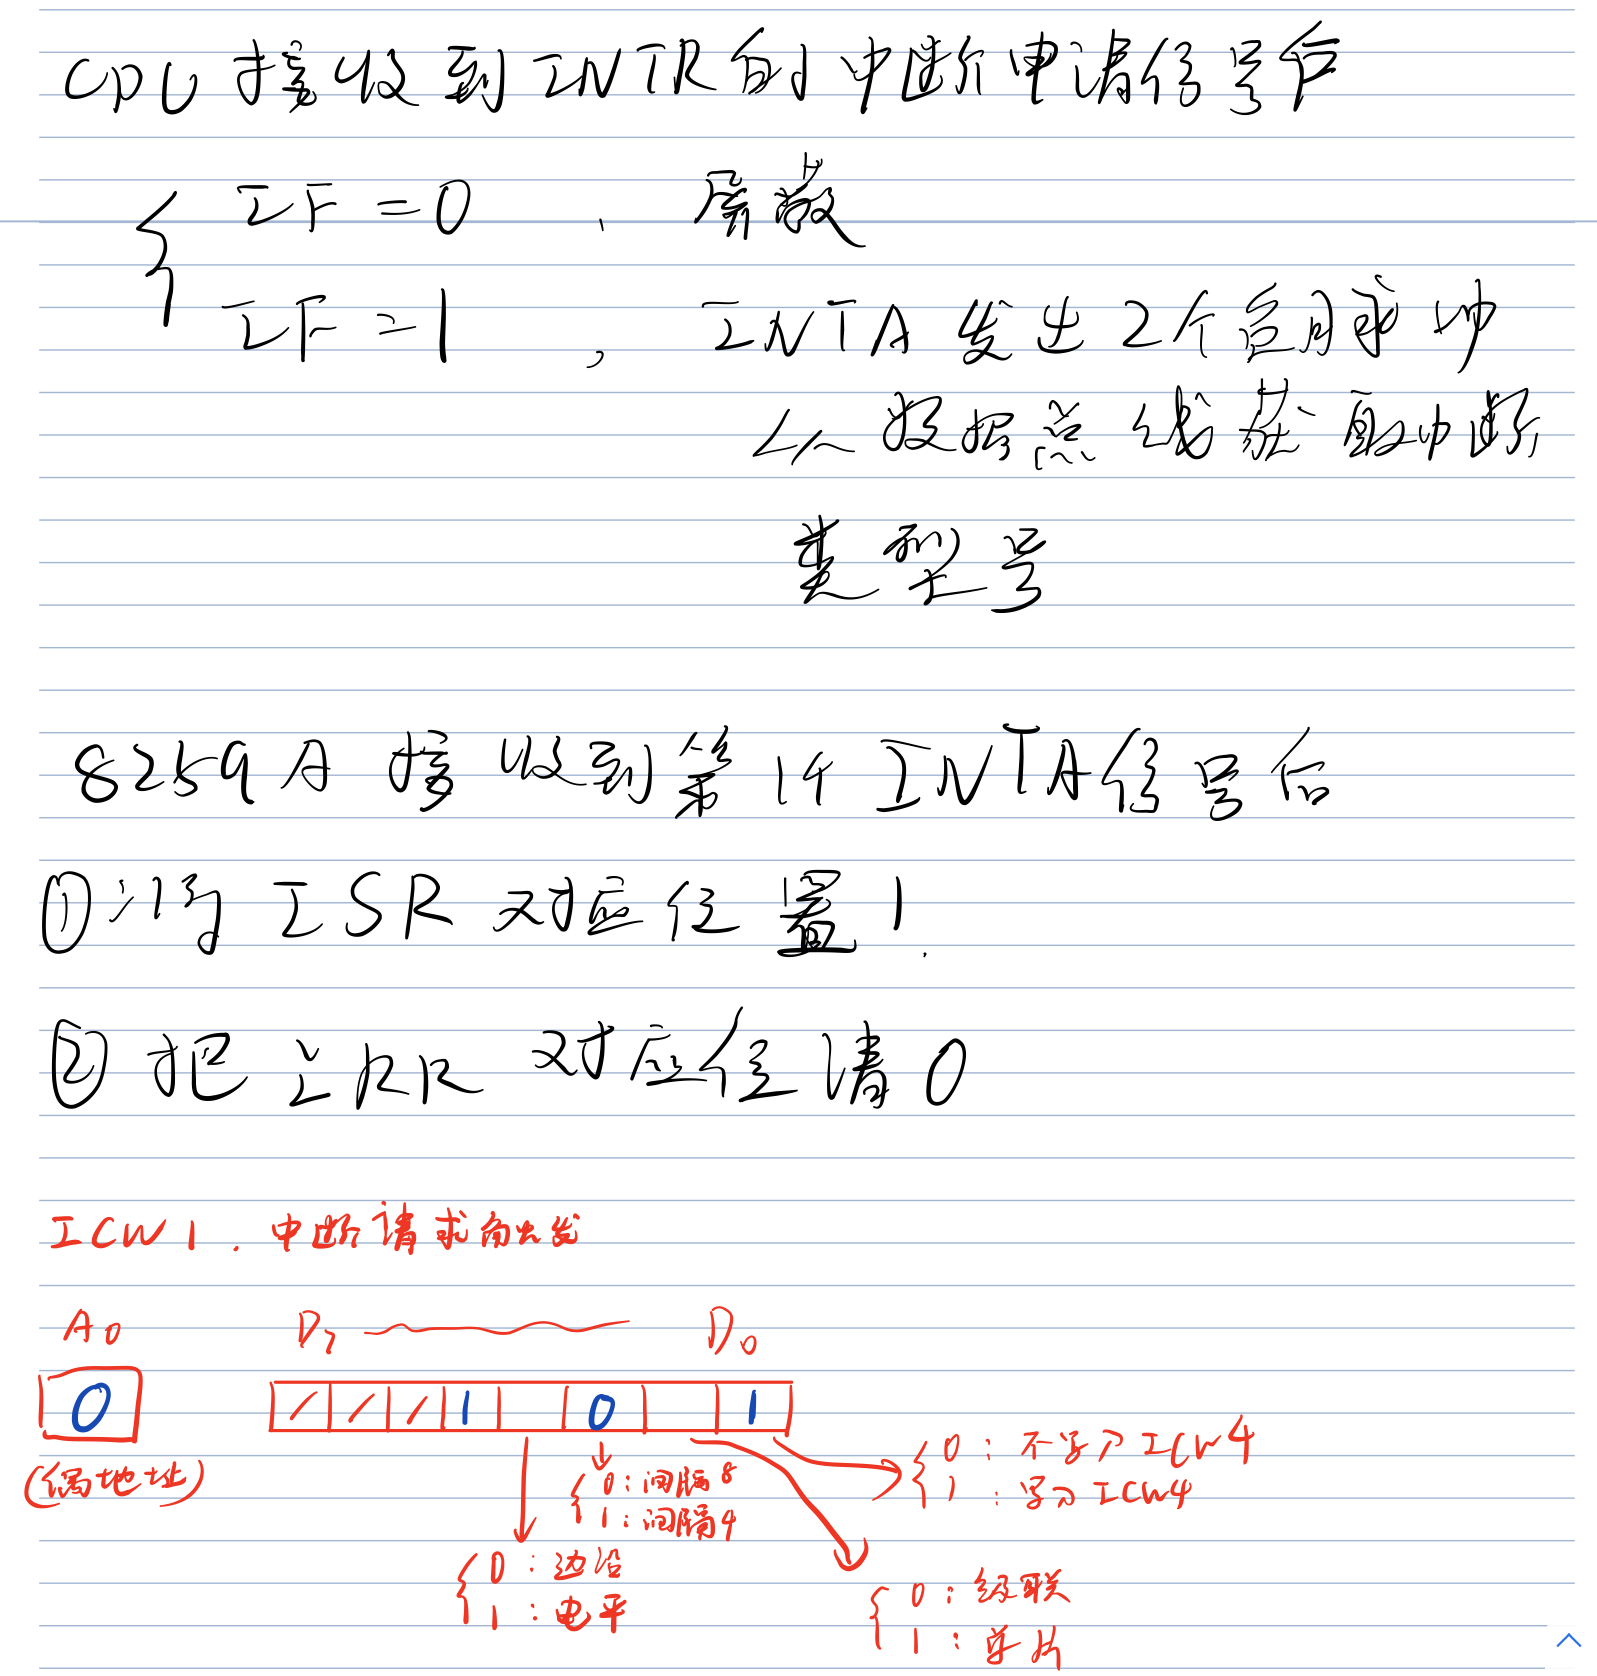 CPU 接收到INTR的中断申请信号后
IF = 0 , 屏蔽
IF = 1 , INTA 发出2个负脉冲
从 数据总线获取中断
类型号
8259A 接收到第1个INTA信号后
①将 ISR 对应位置1.
②把 IRR 对应位清0
ICW1. 中断请求触发
A0 D7 D0
0 1 0 1
(偶地址)
0: 不写入ICW4
1: 写入ICW4
0: 间隔8
1: 间隔4
0: 边沿
1: 电平
0: 级联
1: 单片